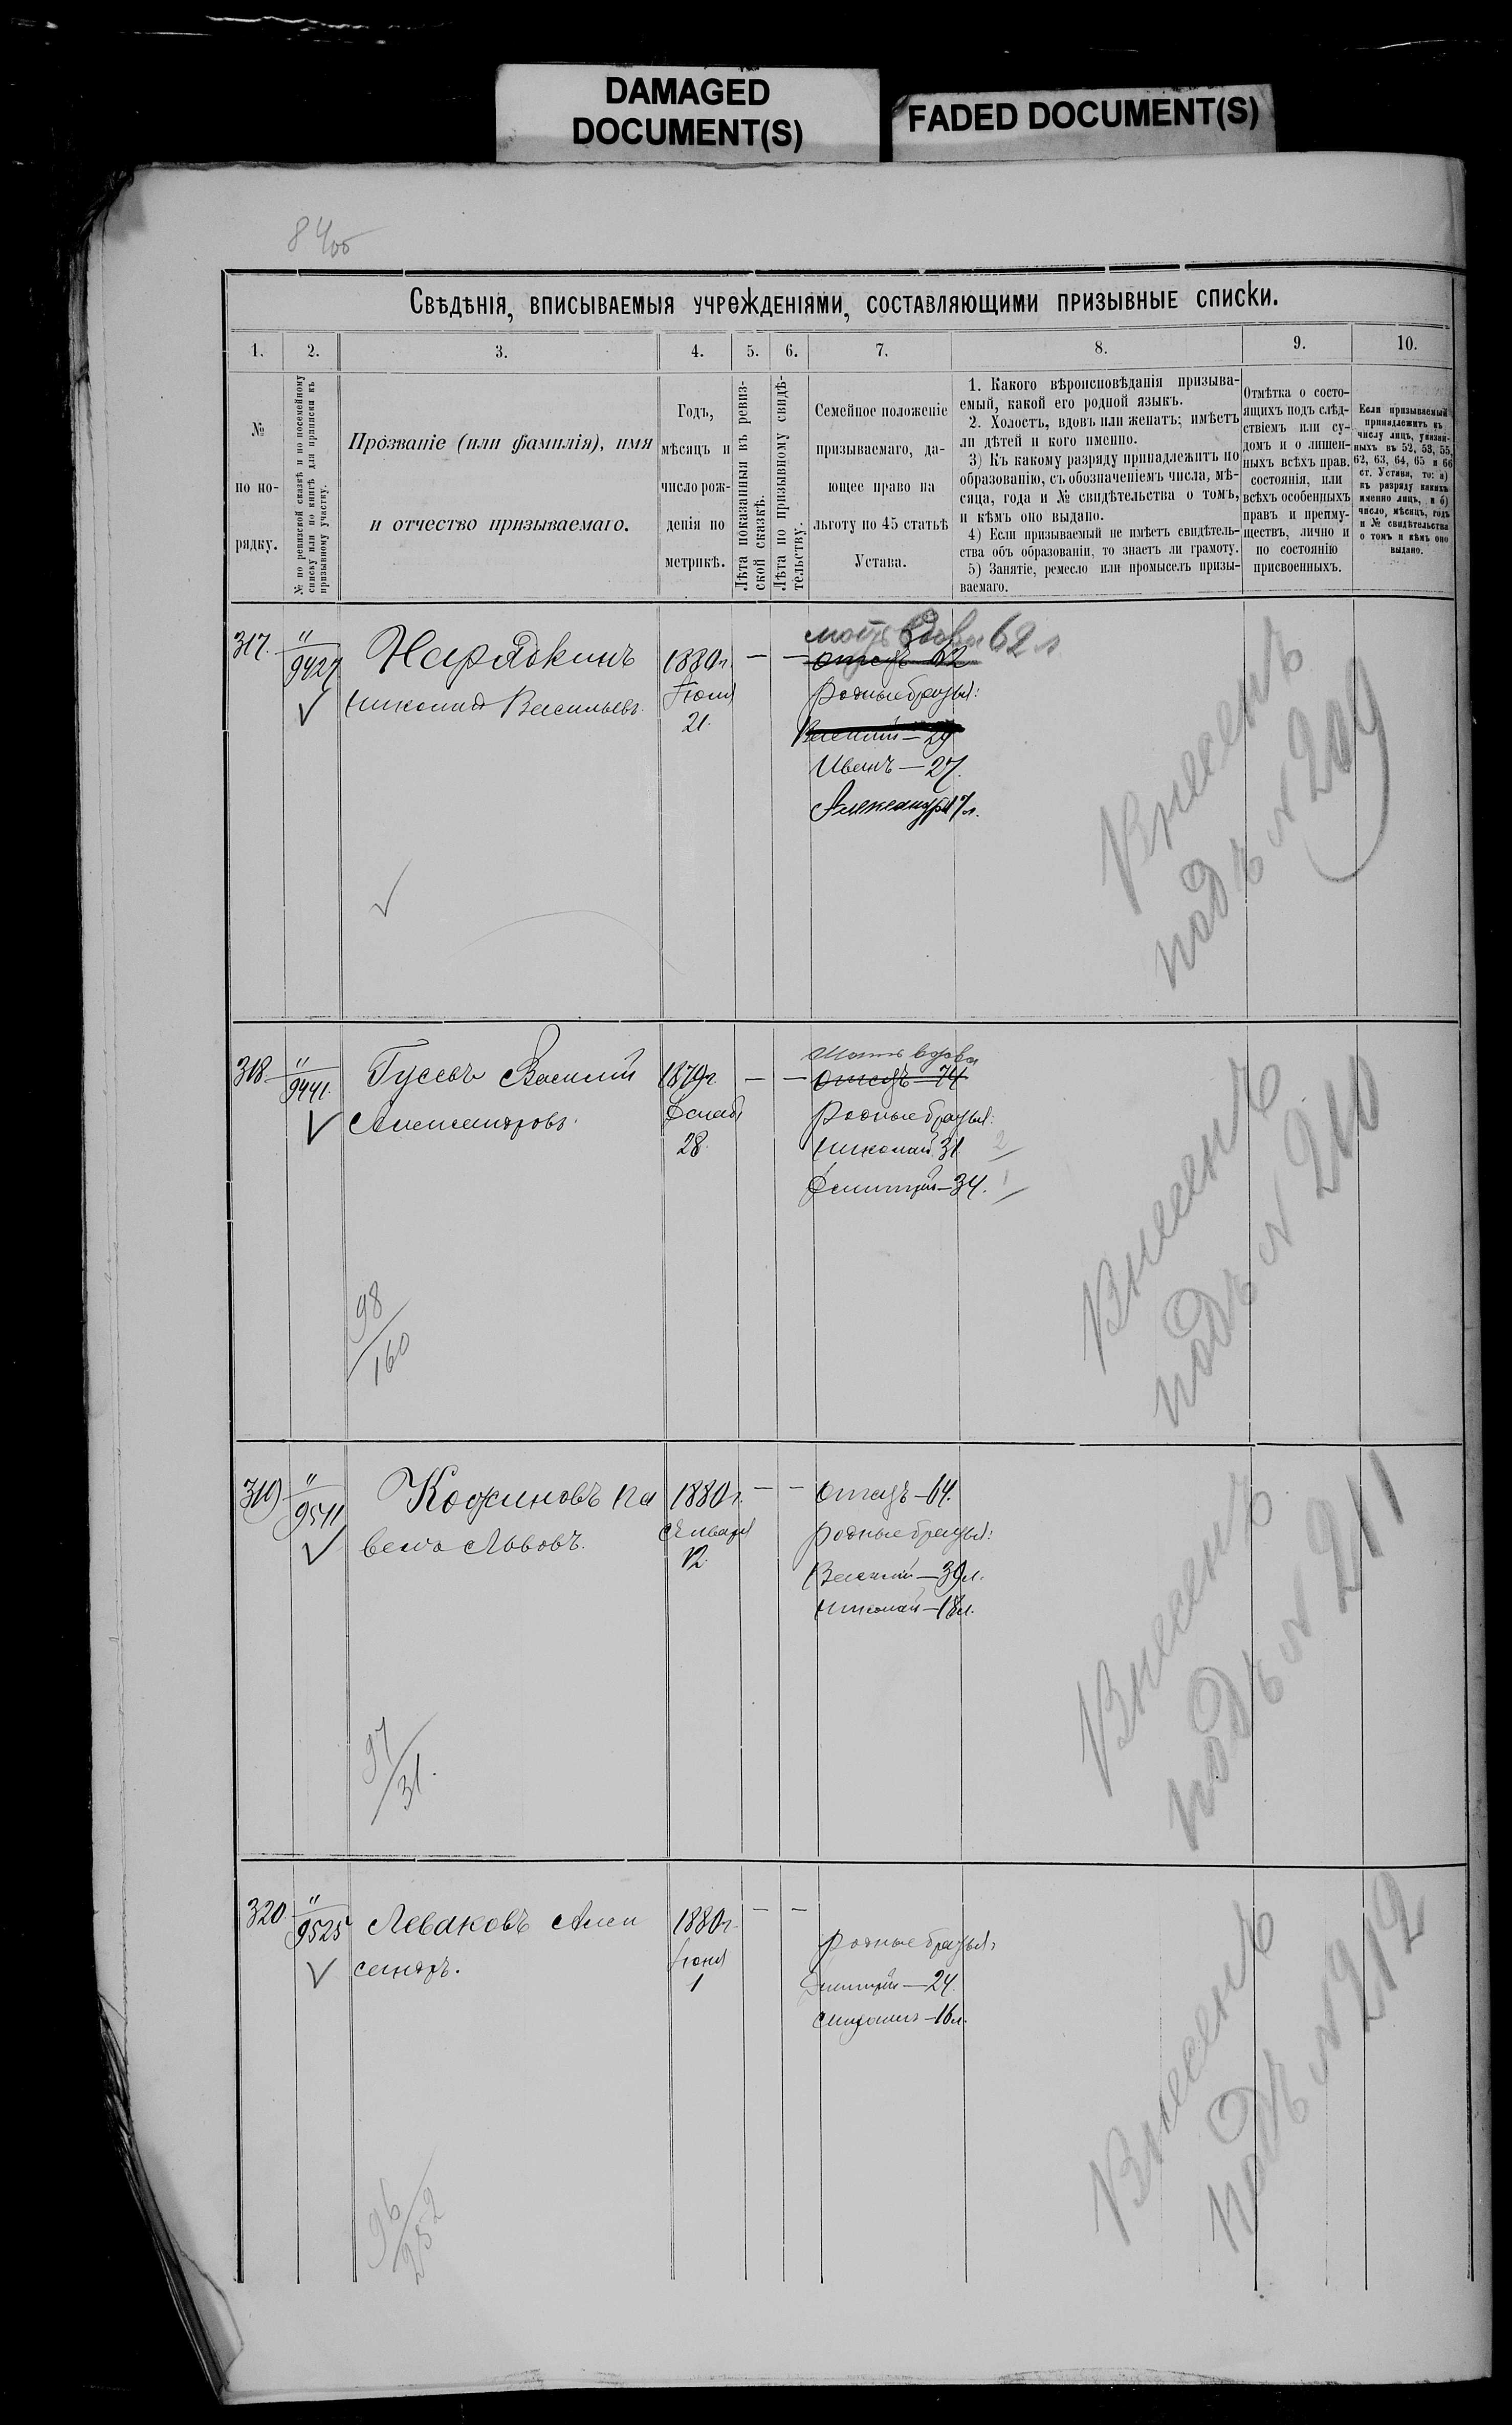 DAMAGED
DOCUMENT(S)
FADED DOCUMENT(S)
84об
Свѣдѣнія, вписываемыя учрежденіями, составляющими призывные списки.
1.
2.
3.
4.
5.
6.
7.
8.
9.
10.
№
по по-
рядку.
№ по ревизской сказкѣ и по посемейному
списку или по книгѣ для приписки къ
призывному участку.
Прозваніе (или фамилія), имя
и отчество призываемаго.
Годъ,
мѣсяцъ и
число рож-
денія по
метрикѣ.
Лѣта показанныя въ ревиз-
ской сказкѣ.
Лѣта по призывному свидѣ-
тельству.
Семейное положеніе
призываемаго, да-
ющее право на
льготу по 45 статьѣ
Устава.
1. Какого вѣроисповѣданія призыва-
емый, какой его родной языкъ.
2. Холостъ, вдовъ или женатъ; имѣетъ
ли дѣтей и кого именно.
3) Къ какому разряду принадлежитъ по
образованію, съ обозначеніемъ числа, мѣ-
сяца, года и № свидѣтельства о томъ,
и кѣмъ оно выдано.
4) Если призываемый не имѣетъ свидѣтель-
ства объ образованіи, то знаетъ ли грамоту.
5) Занятіе, ремесло или промыселъ призы-
ваемаго.
Отмѣтка о состо-
ящихъ подъ слѣд-
ствіемъ или су-
домъ и о лишен-
ныхъ всѣхъ правъ
состоянія, или
всѣхъ особенныхъ
правъ и преиму-
ществъ, лично и
по состоянію
присвоенныхъ.
Если призываемый
принадлежитъ къ
числу лицъ, указан-
ныхъ въ 52, 53, 55,
62, 63, 64, 65 и 66
ст. Устава, то: а)
къ разряду какихъ
именно лицъ, и б)
число, мѣсяцъ, годъ
и № свидѣтельства
о томъ и кѣмъ оно
выдано.
317.
"
9427
Нарядкинъ
Николай Васильевъ
1880 г.
Іюня
21.
— —
мать вдова 62 л
отецъ 62
родные братья:
Василий — 29
Иванъ — 27.
Александръ 17 л.
Внесенъ
подъ № 209
318
"
9441.
Гусевъ Василий
Александровъ.
1879 г.
Декаб
28.
— —
Мать вдова
отецъ — 74
Родные братья:
Николай 31 2
Дмитрий — 34. 1
98/160
Внесенъ
подъ № 210
319
"
9511
Кожиновъ Па
велъ Львовъ.
1880 г.
Января
12.
— —
отецъ — 64.
родные братья:
Василий — 39 л.
Николай — 18 л.
97/31.
Внесенъ
подъ № 211
320.
"
9525
Леваковъ Алек
сандръ.
1880 г.
Іюня
1
— —
родные братья:
Дмитрий — 24.
— 16 л.
96/252
Внесенъ
подъ № 212